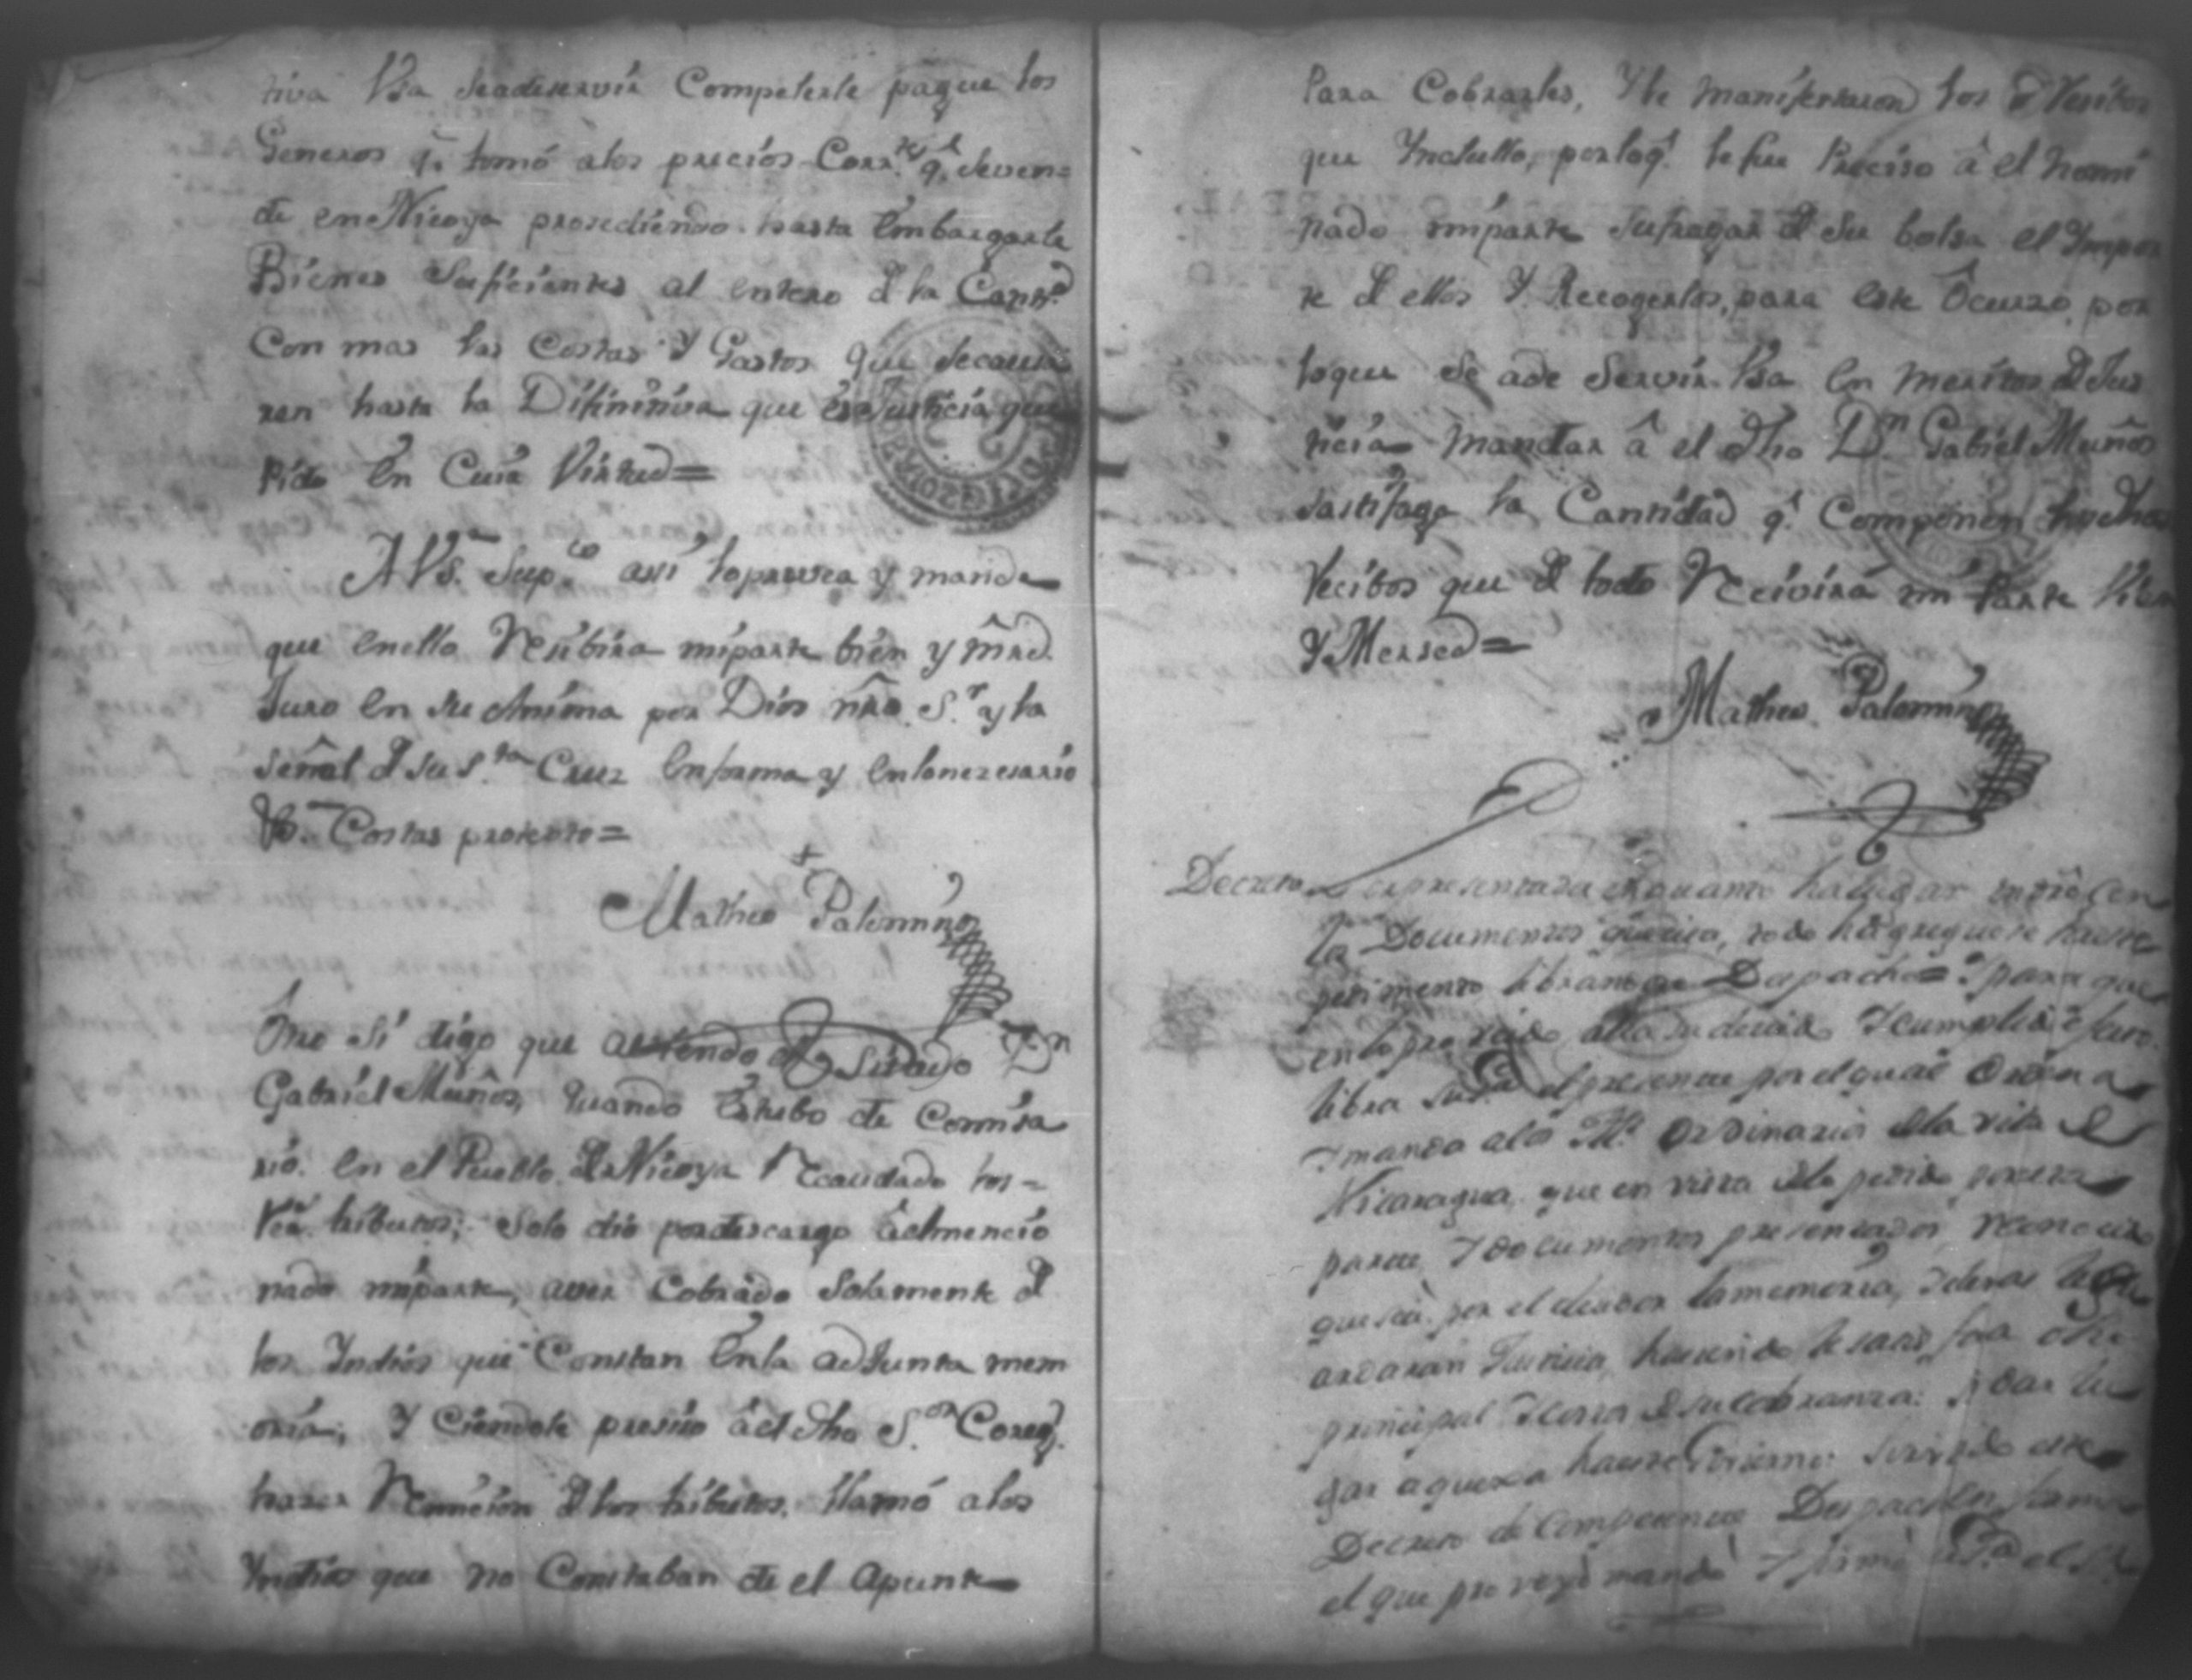 tiva Vsa seadeservir Competerle pague los
Generos q.e tomó alos precios Corr.tes q.e seven=
de en Nicoya prosediendo hasta Embargarle
Bienes Suficientes al entero d la Cant.d
Con mas las Costas Y Gastos que secausa
ren hasta la Difinitiva que es Justicia que
Pido En Cuia Virtud=
A VS.a Sup.co asi loprovea y mande
que enello Resibira miparte bien y mrd.
Juro En su Anima por Dios nrõ S.r y la
señal d su S.ta Cruz Enforma y Enlonezesario
V.a Costas protesto=
Matheo Palomino
Otro Si digo que aviendo el Sitado D.n
Gabriel Muños, quando Estubo de Comisa
rio. En el Pueblo d Nicoya Recaudado los=
Rea.s tributos; Solo dio pordescargo âelmencio
nado miparte, aver Cobrado Solamente d
los Yndios que Constan Enla adJunta mem
oria; Y Ciendole presiso âel dho S.or Coreg.r
hazer Remicion d los tributos, llamó alos
Yndios que no Constaban de el Apunte
Para Cobrarles, Y le manifestaron los Recibos
que Ynclullo, porloq.e le fue Preciso â el nomi
nado miparte sufragar d su bolsa el Ympor
te d ellos Y Recogerlos, para este Ôcurso, por
loque se ade Servir Vsa En meritos d Jus
ticia Mandar â el dho D.n Gabriel Muños
sastifaga la Cantidad q.e Componen dhos
Recibos que d todo Recivirá mi Parte Vien
Y Mersed=
Matheo Palomino
Decreto presentada en quanto ha lugar en dro Con
los Documentos todo Y agreguese haste
perimento librandose Despacho= Y para que
en lo proveido alla su devido Y cumplido efecto
libra su S.a el presente por el qual Ordena
Y manda alos Al.s Ordinarios dla villa d
Nicaragua, que en vista dlo pedido por esta
parte, Y documentos presentados, Reconocida
que sea por el deudor lamemoria, Y demas
ardaran Justicia, haciendo le satisfaga dho
principal Y costas d su cobranza: sin dar lu
gar a quexa haueste Govierno: Sirviendo este
Decreto de Competente Despacho en forma
el que proveyó mandó Y firmó su S.a el S.r